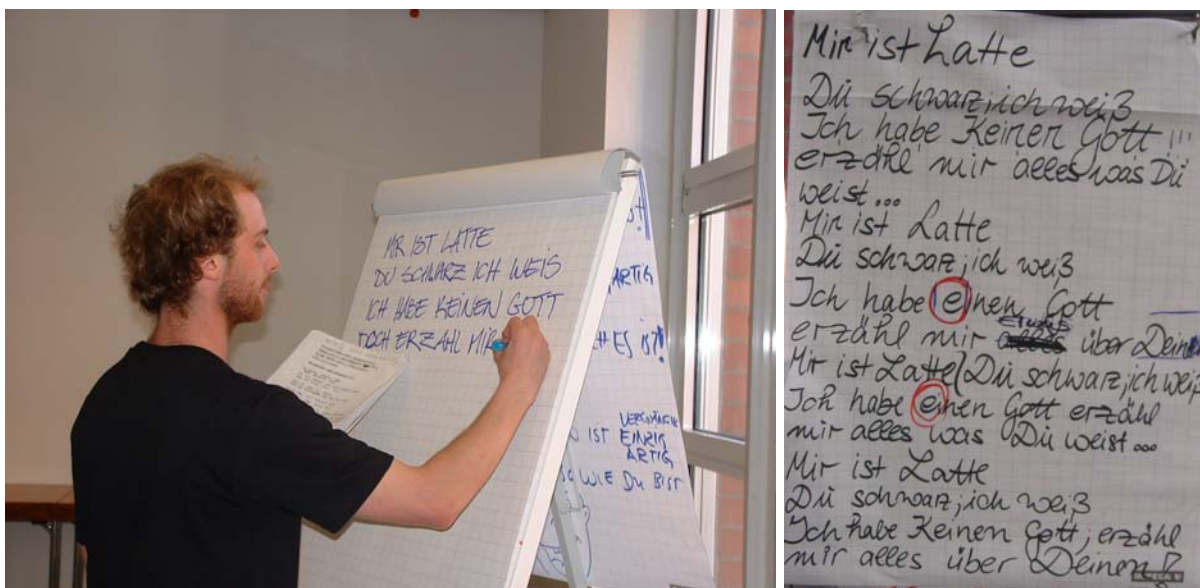 MIR IST LATTE
DU SCHWARZ ICH WEIS
ICH HABE KEINEN GOTT
DOCH ERZAHL MIR
ARTIG
ES IST!
IST EINZIG
ARTIG
SO WIE DU BIST
Mir ist Latte
Du schwarz, ich weiß
Ich habe Keinen Gott !!!
erzähl mir alles was Du
weist...
Mir ist Latte
Du schwarz, ich weiß
Ich habe einen Gott
erzähl mir etwas über Dein
Mir ist Latte (Du schwarz, ich weiß
Ich habe einen Gott erzähl
mir alles was Du weist...
Mir ist Latte
Du schwarz, ich weiß
Ich habe Keinen Gott, erzähl
mir alles über Deinen!